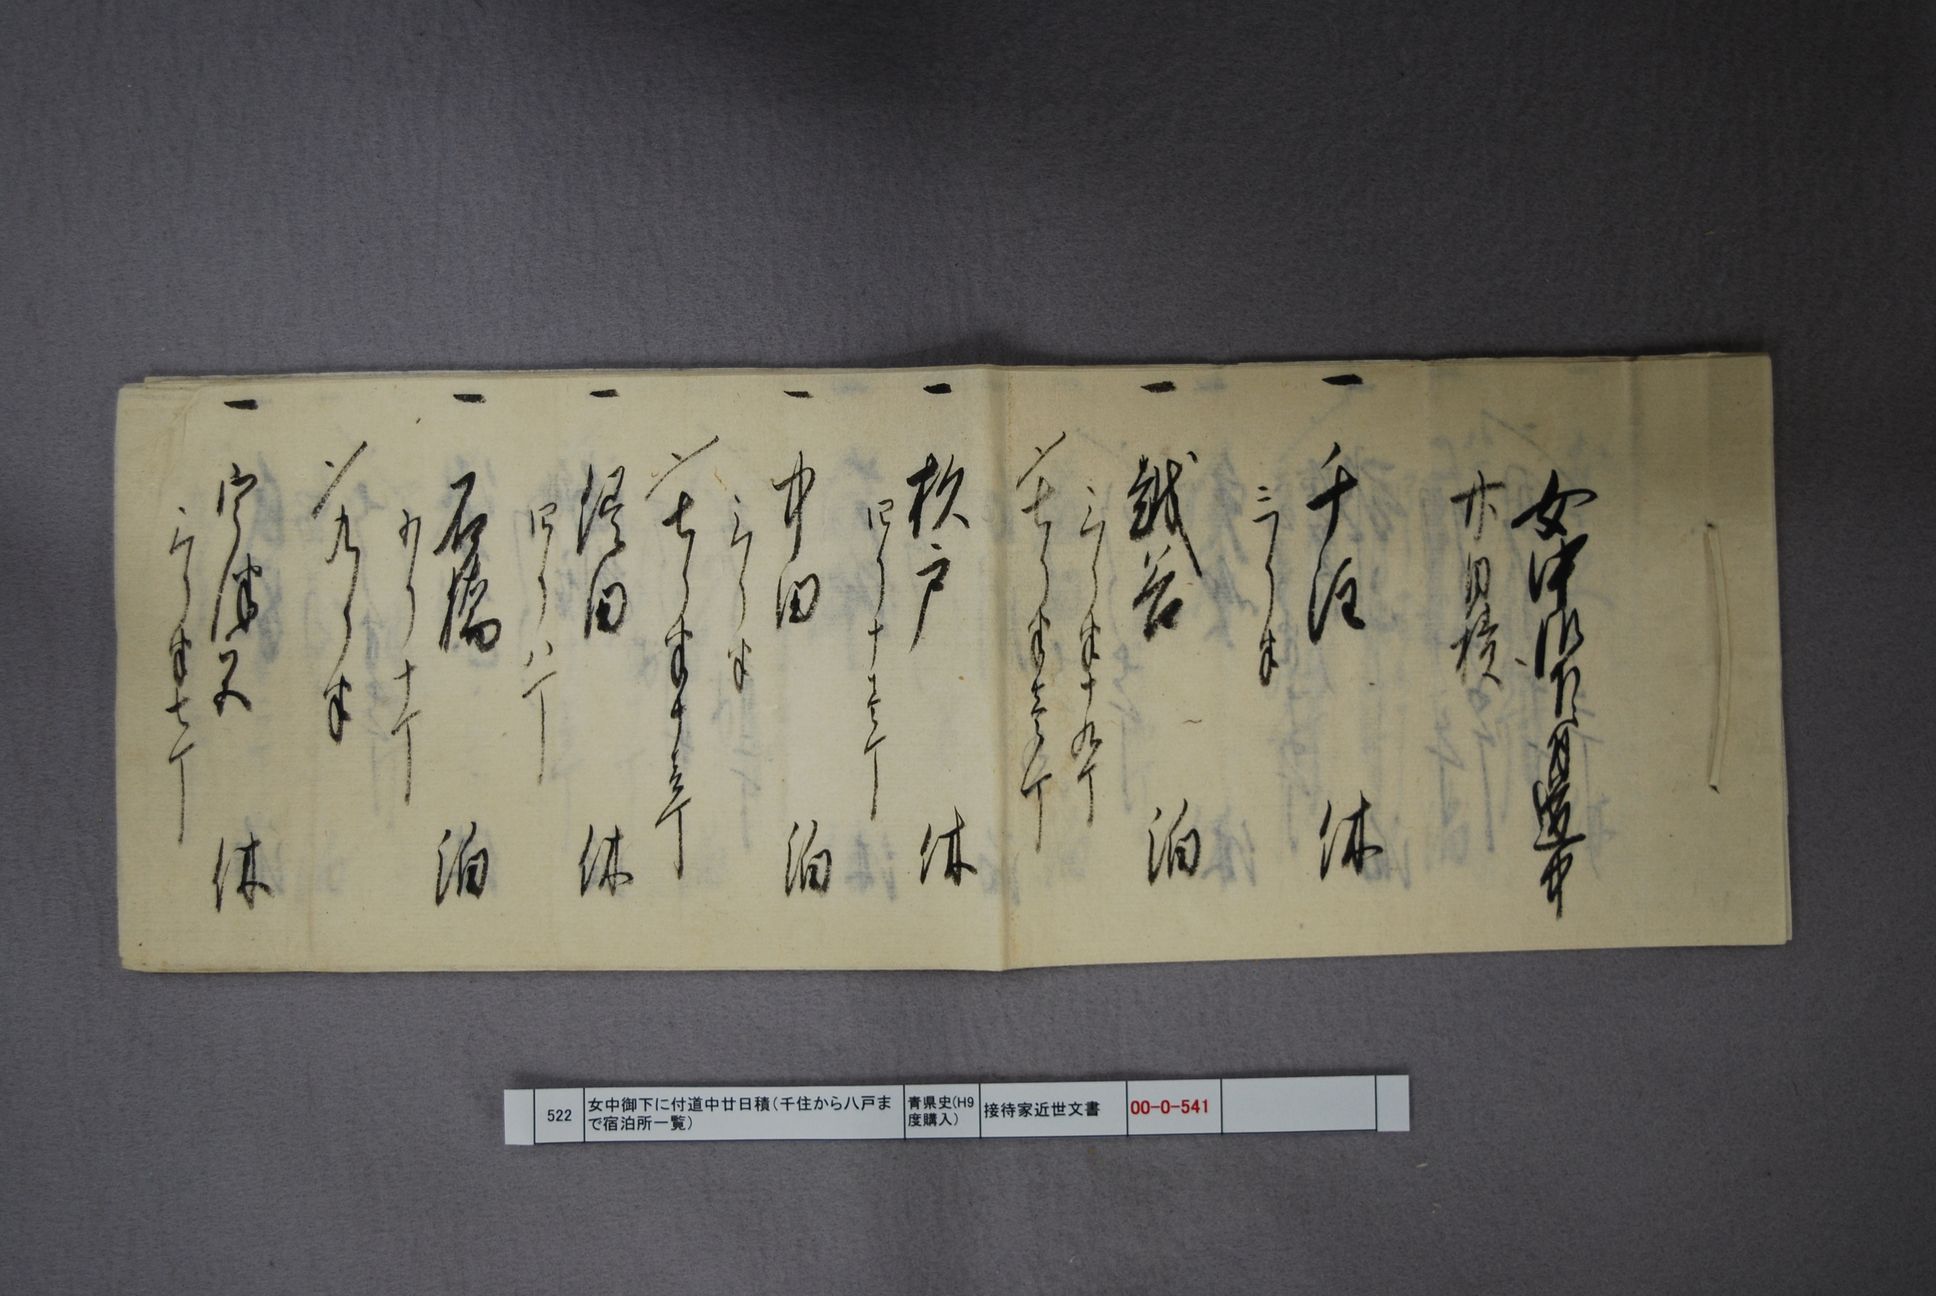 女中御下ニ付道中
廿日積
一 千住 休
二り半
一 越谷 泊
三り半十九丁
〆七り半壱丁
一 杦戸 休
四り十壱丁
一 中田 泊
三り半
〆七り半十壱丁
一 間々田 休
四り八丁
一 石橋 泊
五り十丁
〆九り半
一 宇津宮 休
三り半七丁
522
女中御下に付道中廿日積(千住から八戸ま
で宿泊所一覧)
青県史(H9
度購入)
接待家近世文書
00-0-541